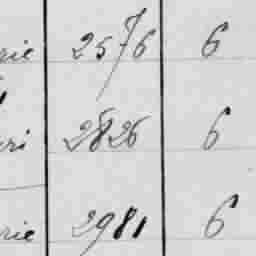 rie 2576 6
ri 2826 6
rie 2981 6